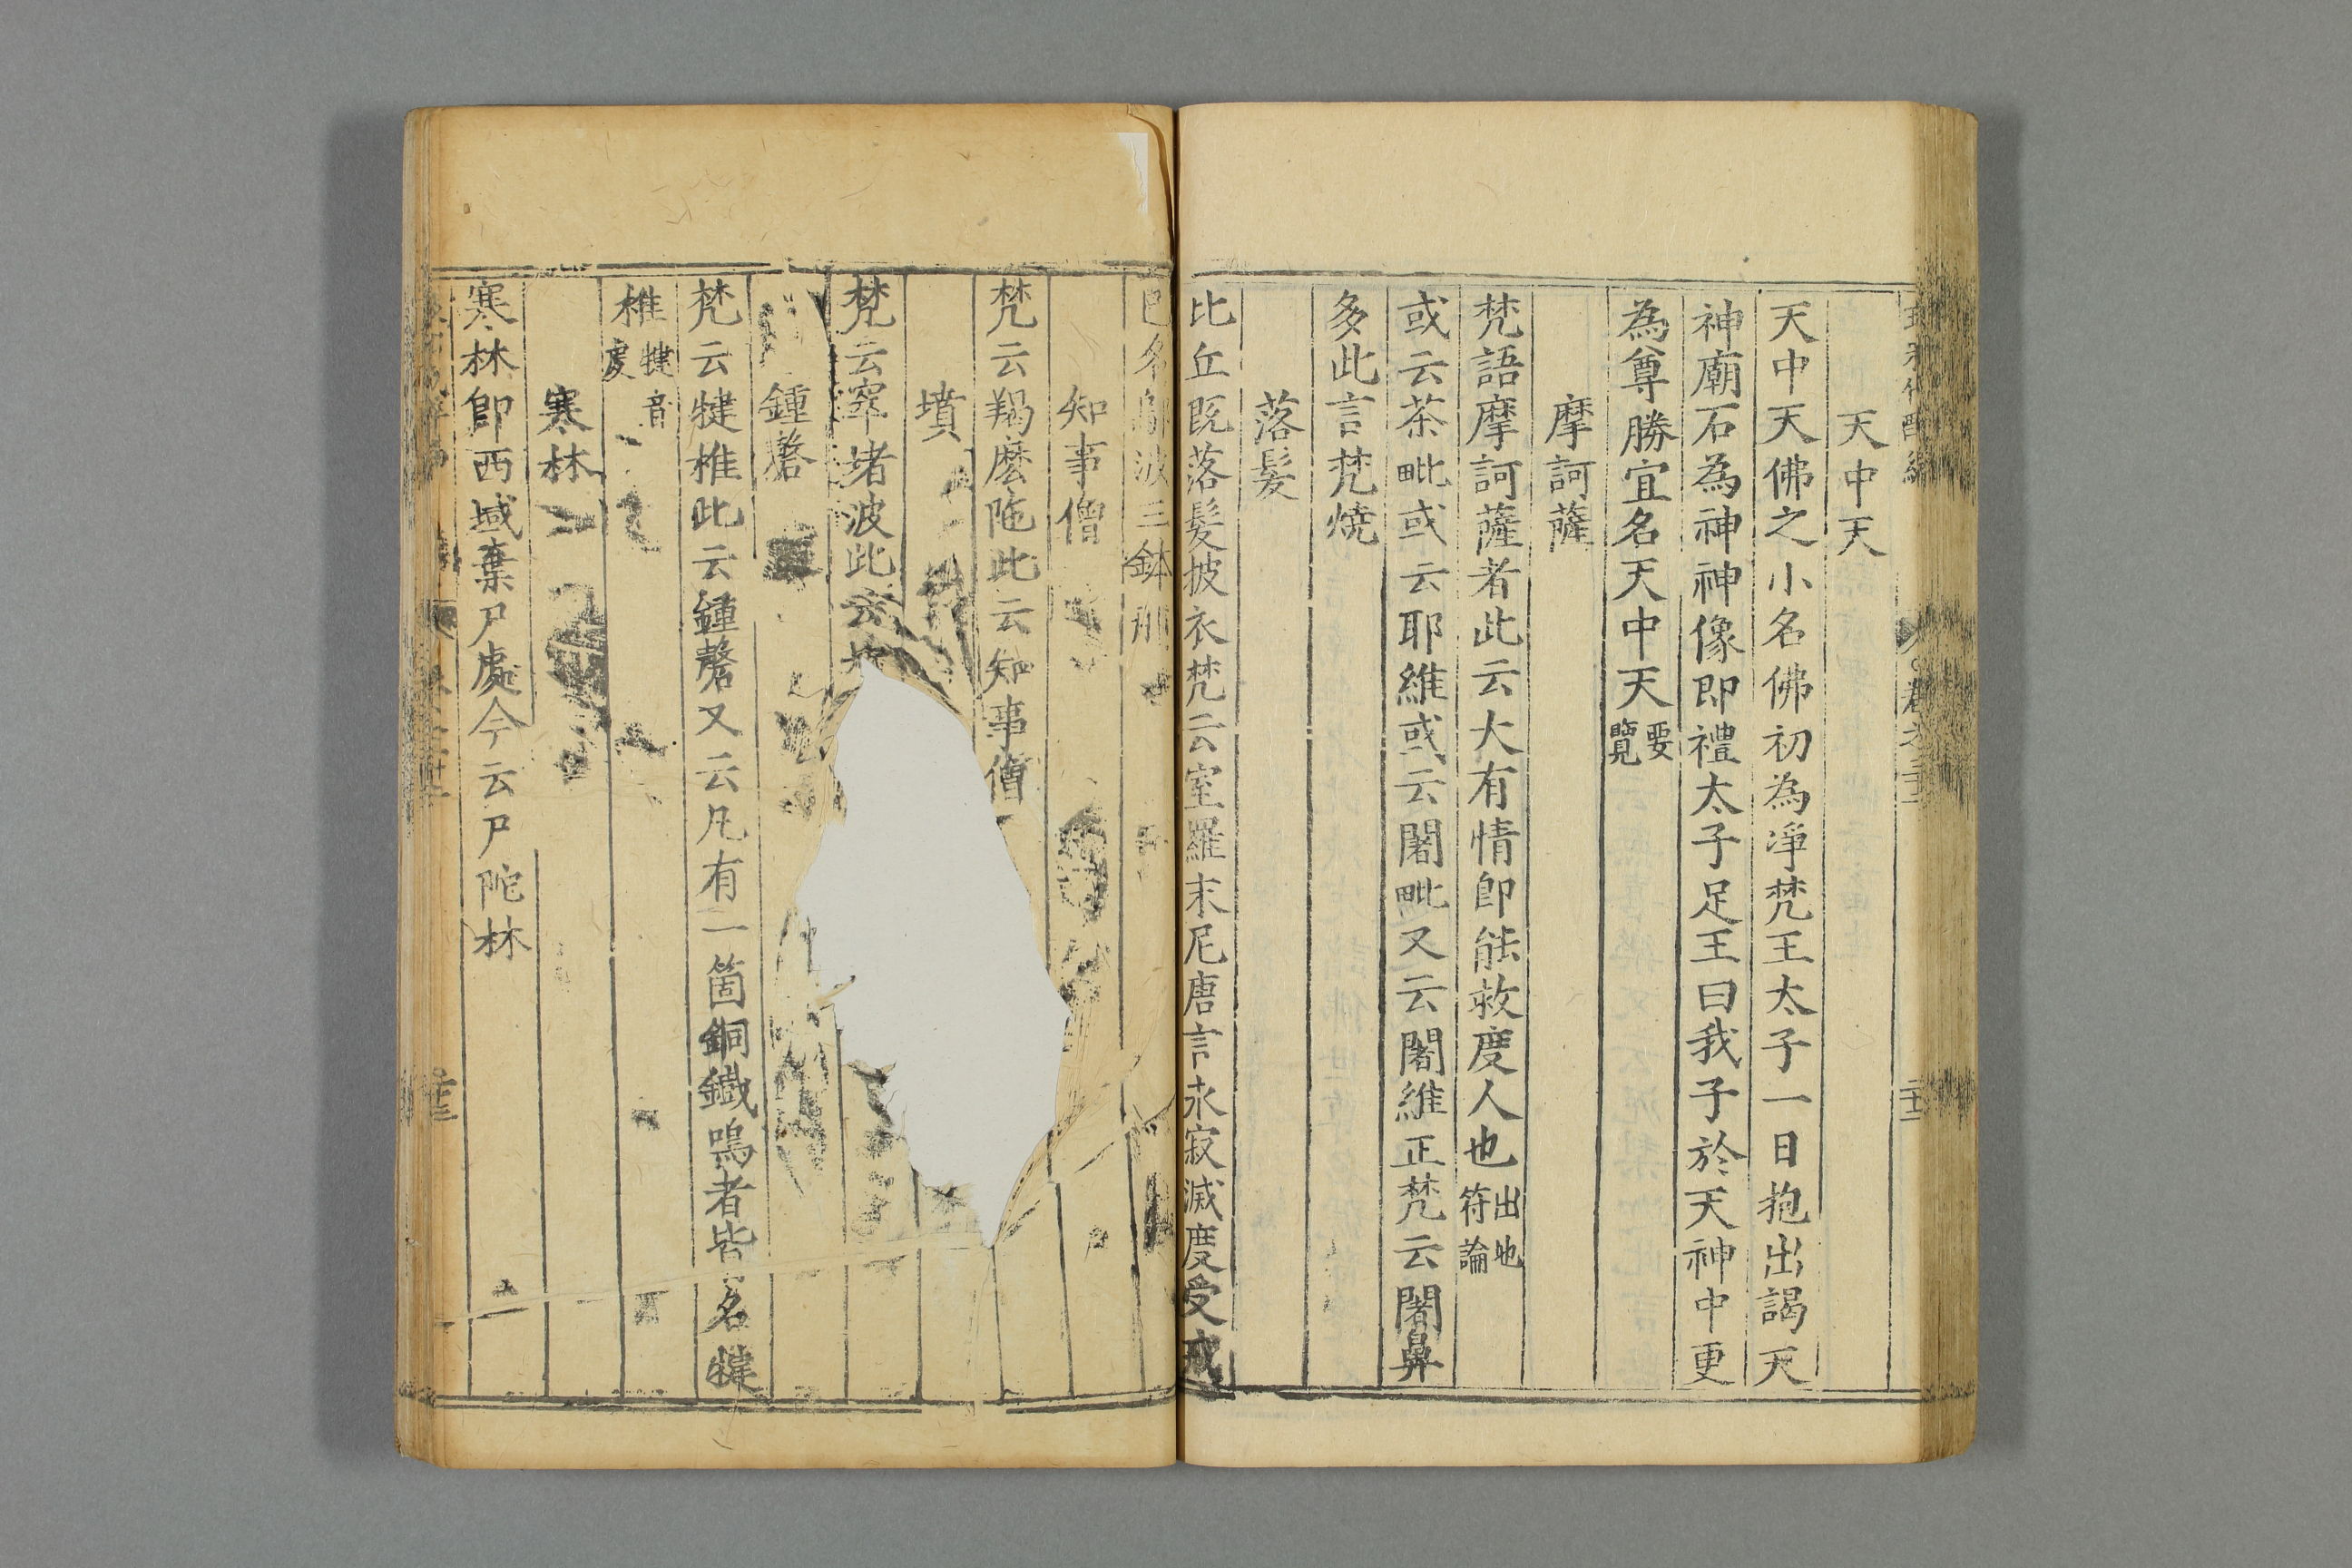 天中天
天中天佛之小名佛初為淨梵王太子一日抱出謁天
神廟石為神神像即禮太子足王曰我子於天神中更
為尊勝宜名天中天要覽
摩訶薩
梵語摩訶薩者此云大有情卽能救度人也出地符論
或云茶毗或云耶維或云闍毗又云闍維正梵云闍鼻
多此言焚燒
落髮
比丘既落髮披衣梵云室羅末尼唐言永寂滅度受戒
已名鄔波三鉢那
知事僧
梵云羯磨陁此云知事僧
墳
梵云窣堵波此云墳
鍾磬
梵云犍椎此云鍾磬又云凡有一箇銅鐵鳴者皆名犍
椎犍音虔
寒林
寒林卽西域棄尸處今云尸陀林